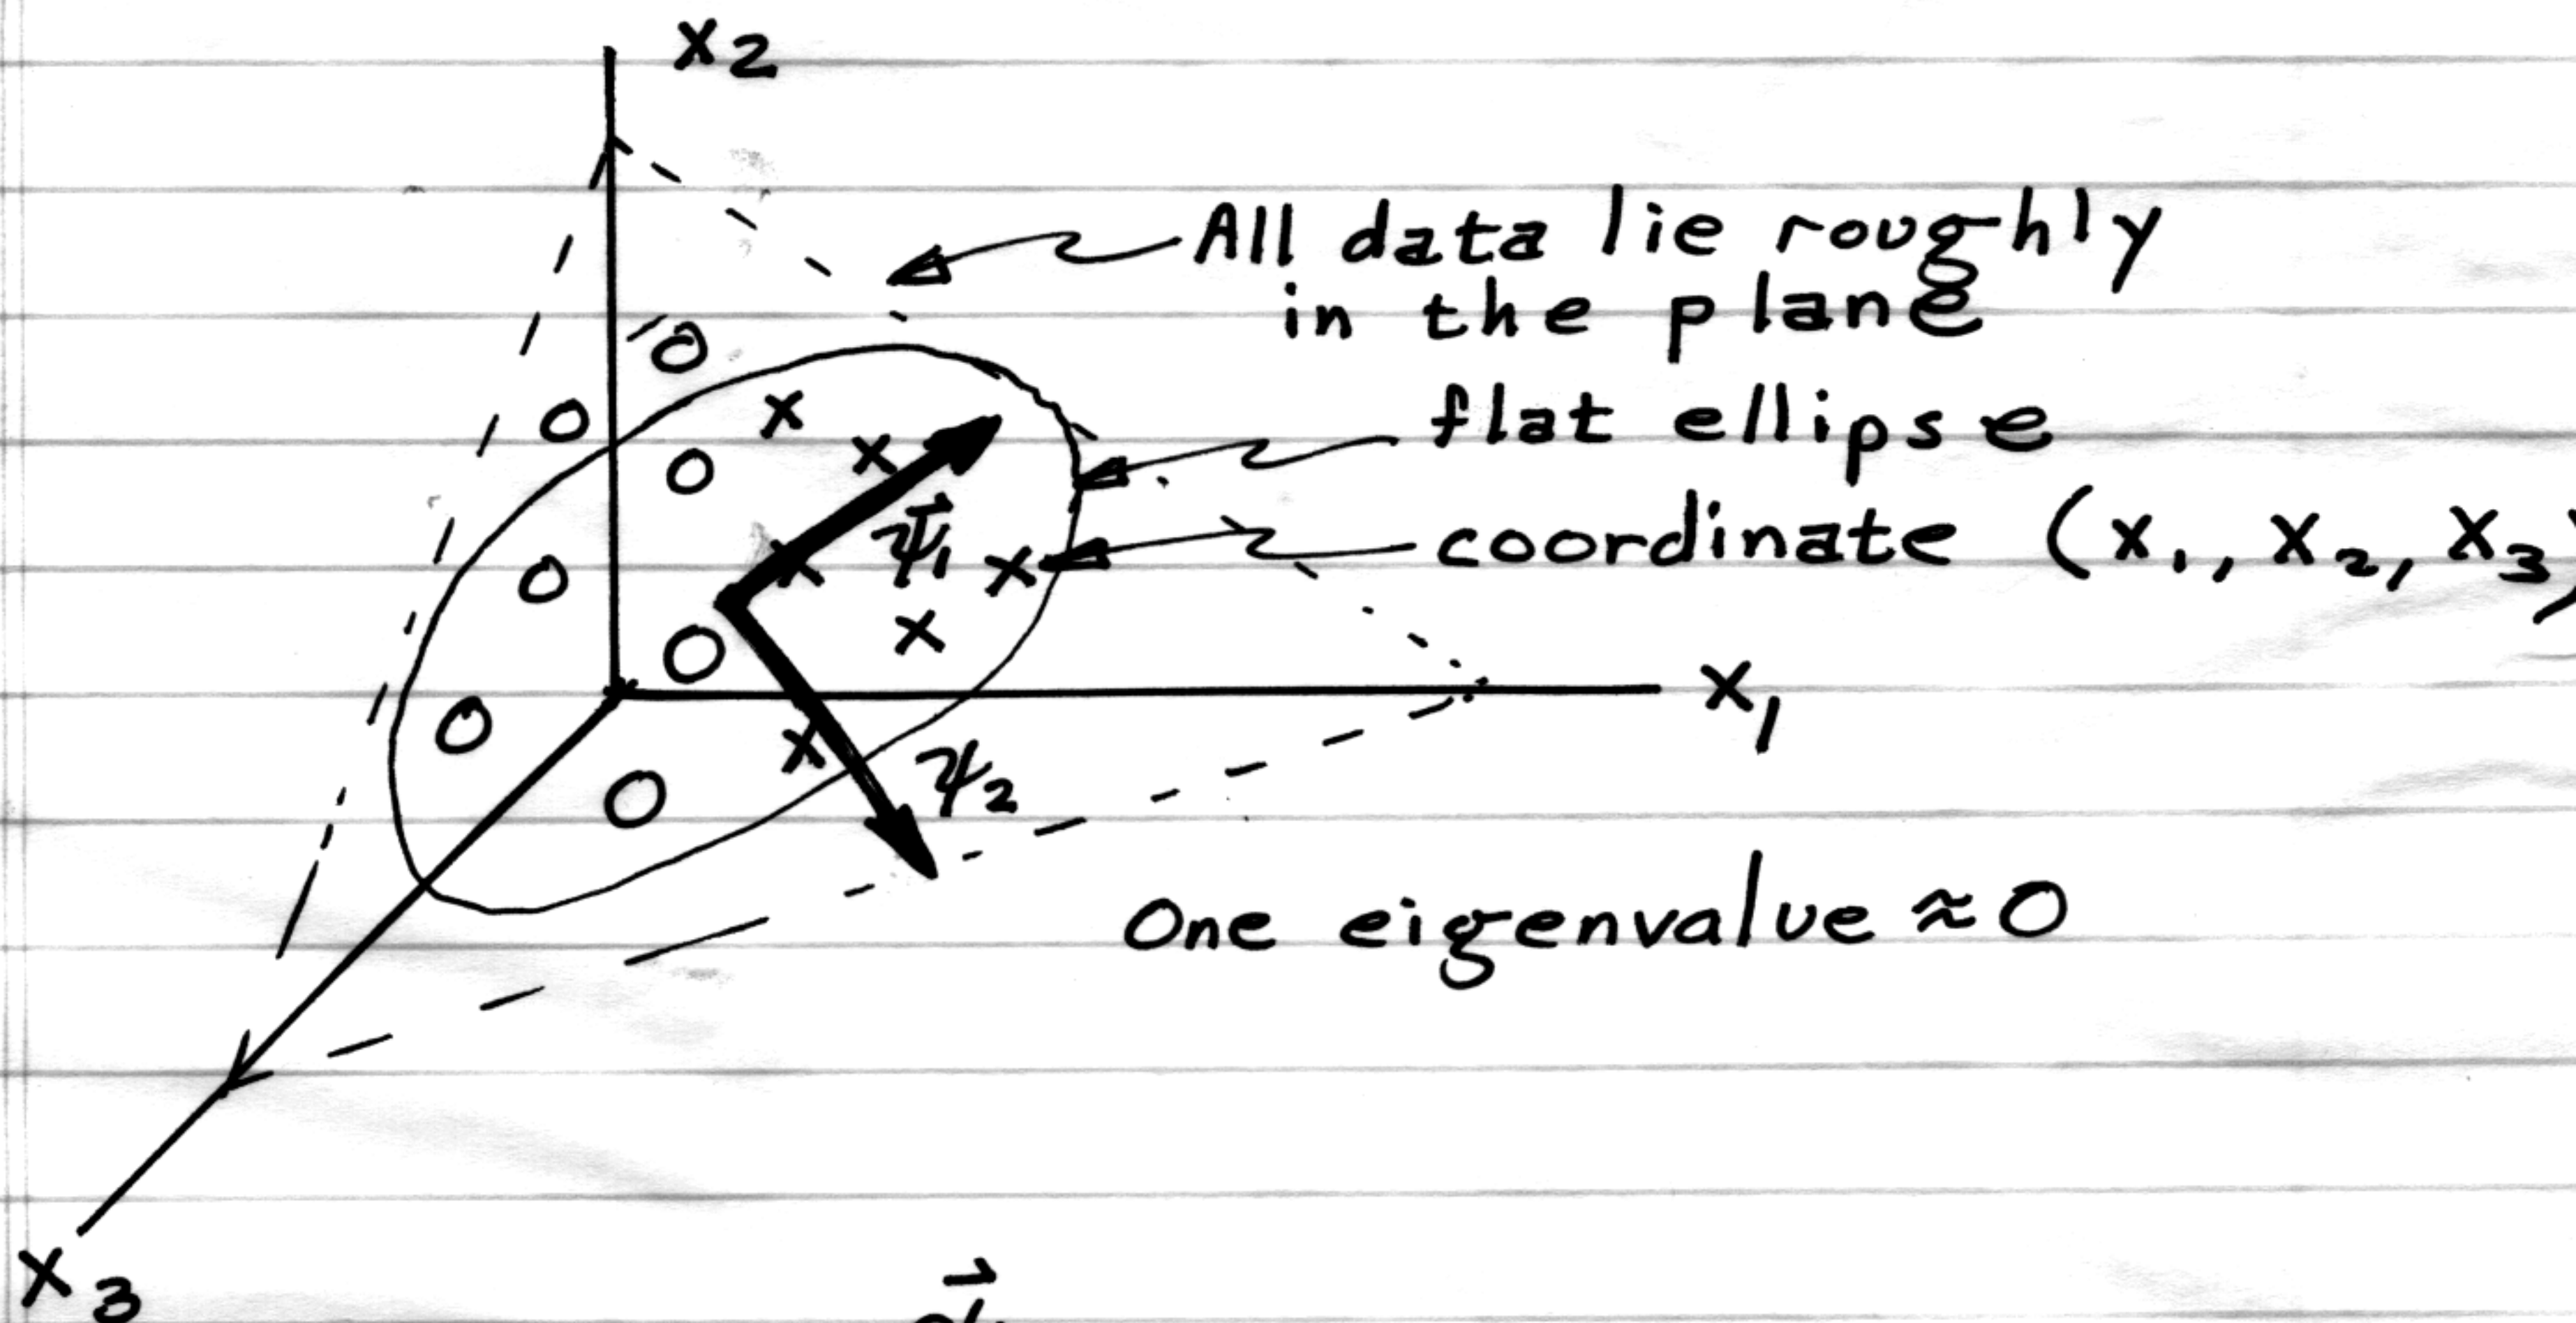 x2
All data lie roughly
in the plane
flat ellipse
coordinate (x1, x2, x3)
ψ⃗1
x1
ψ2
One eigenvalue ≈ 0
x3